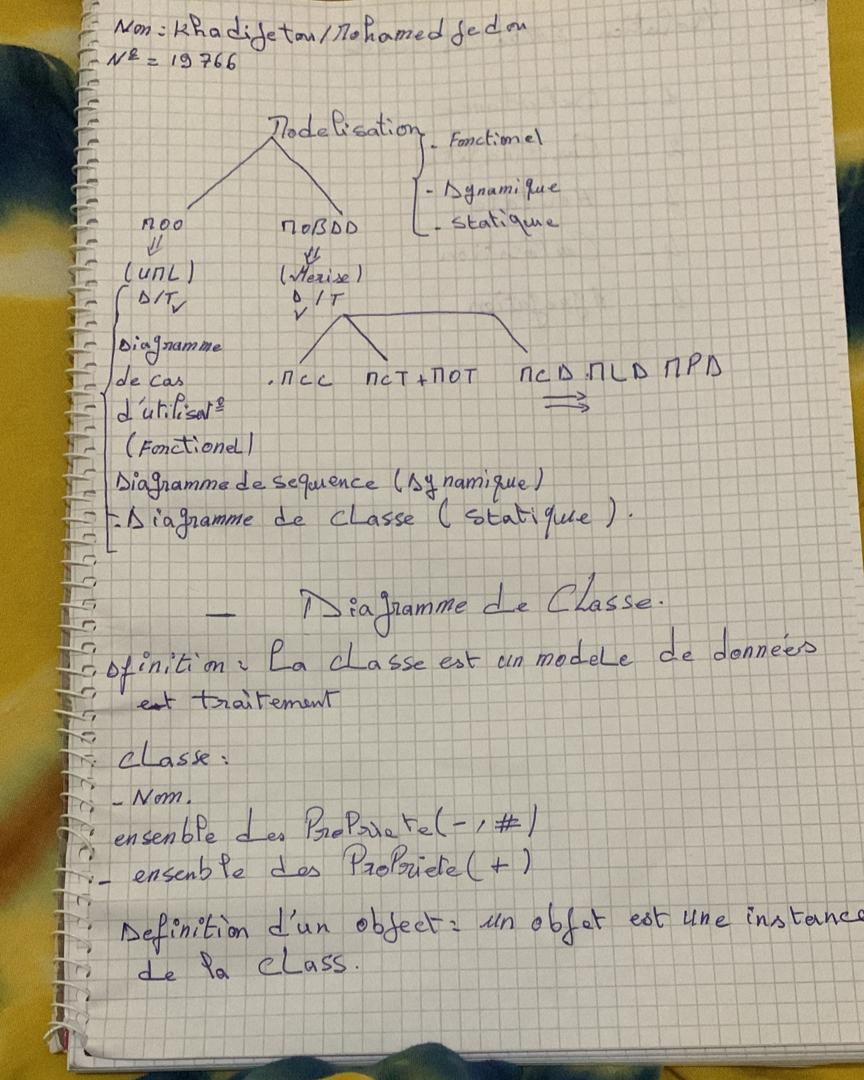 Nom : Khadijetou / Mohamed Jedou
Nº = 19766
Modelisation
- Fonctionel
- Dynamique
- Statique
MOO MOBDD
(UML) (Merise)
D/T D/T
Diagramme
de cas . MCC MCT + MOT MCD . MLD MPD
d'utilisatº
(Fonctionel)
Diagramme de sequence (Dynamique)
- Diagramme de classe ( Statique ) .
— Diagramme de Classe.
Dfinition : La classe est un modele de données
et traitement
classe :
- Nom.
ensenble des Propriete (- , #)
- ensenble des Propriete ( + )
Definition d'un object : un objet est une instance
de la class.